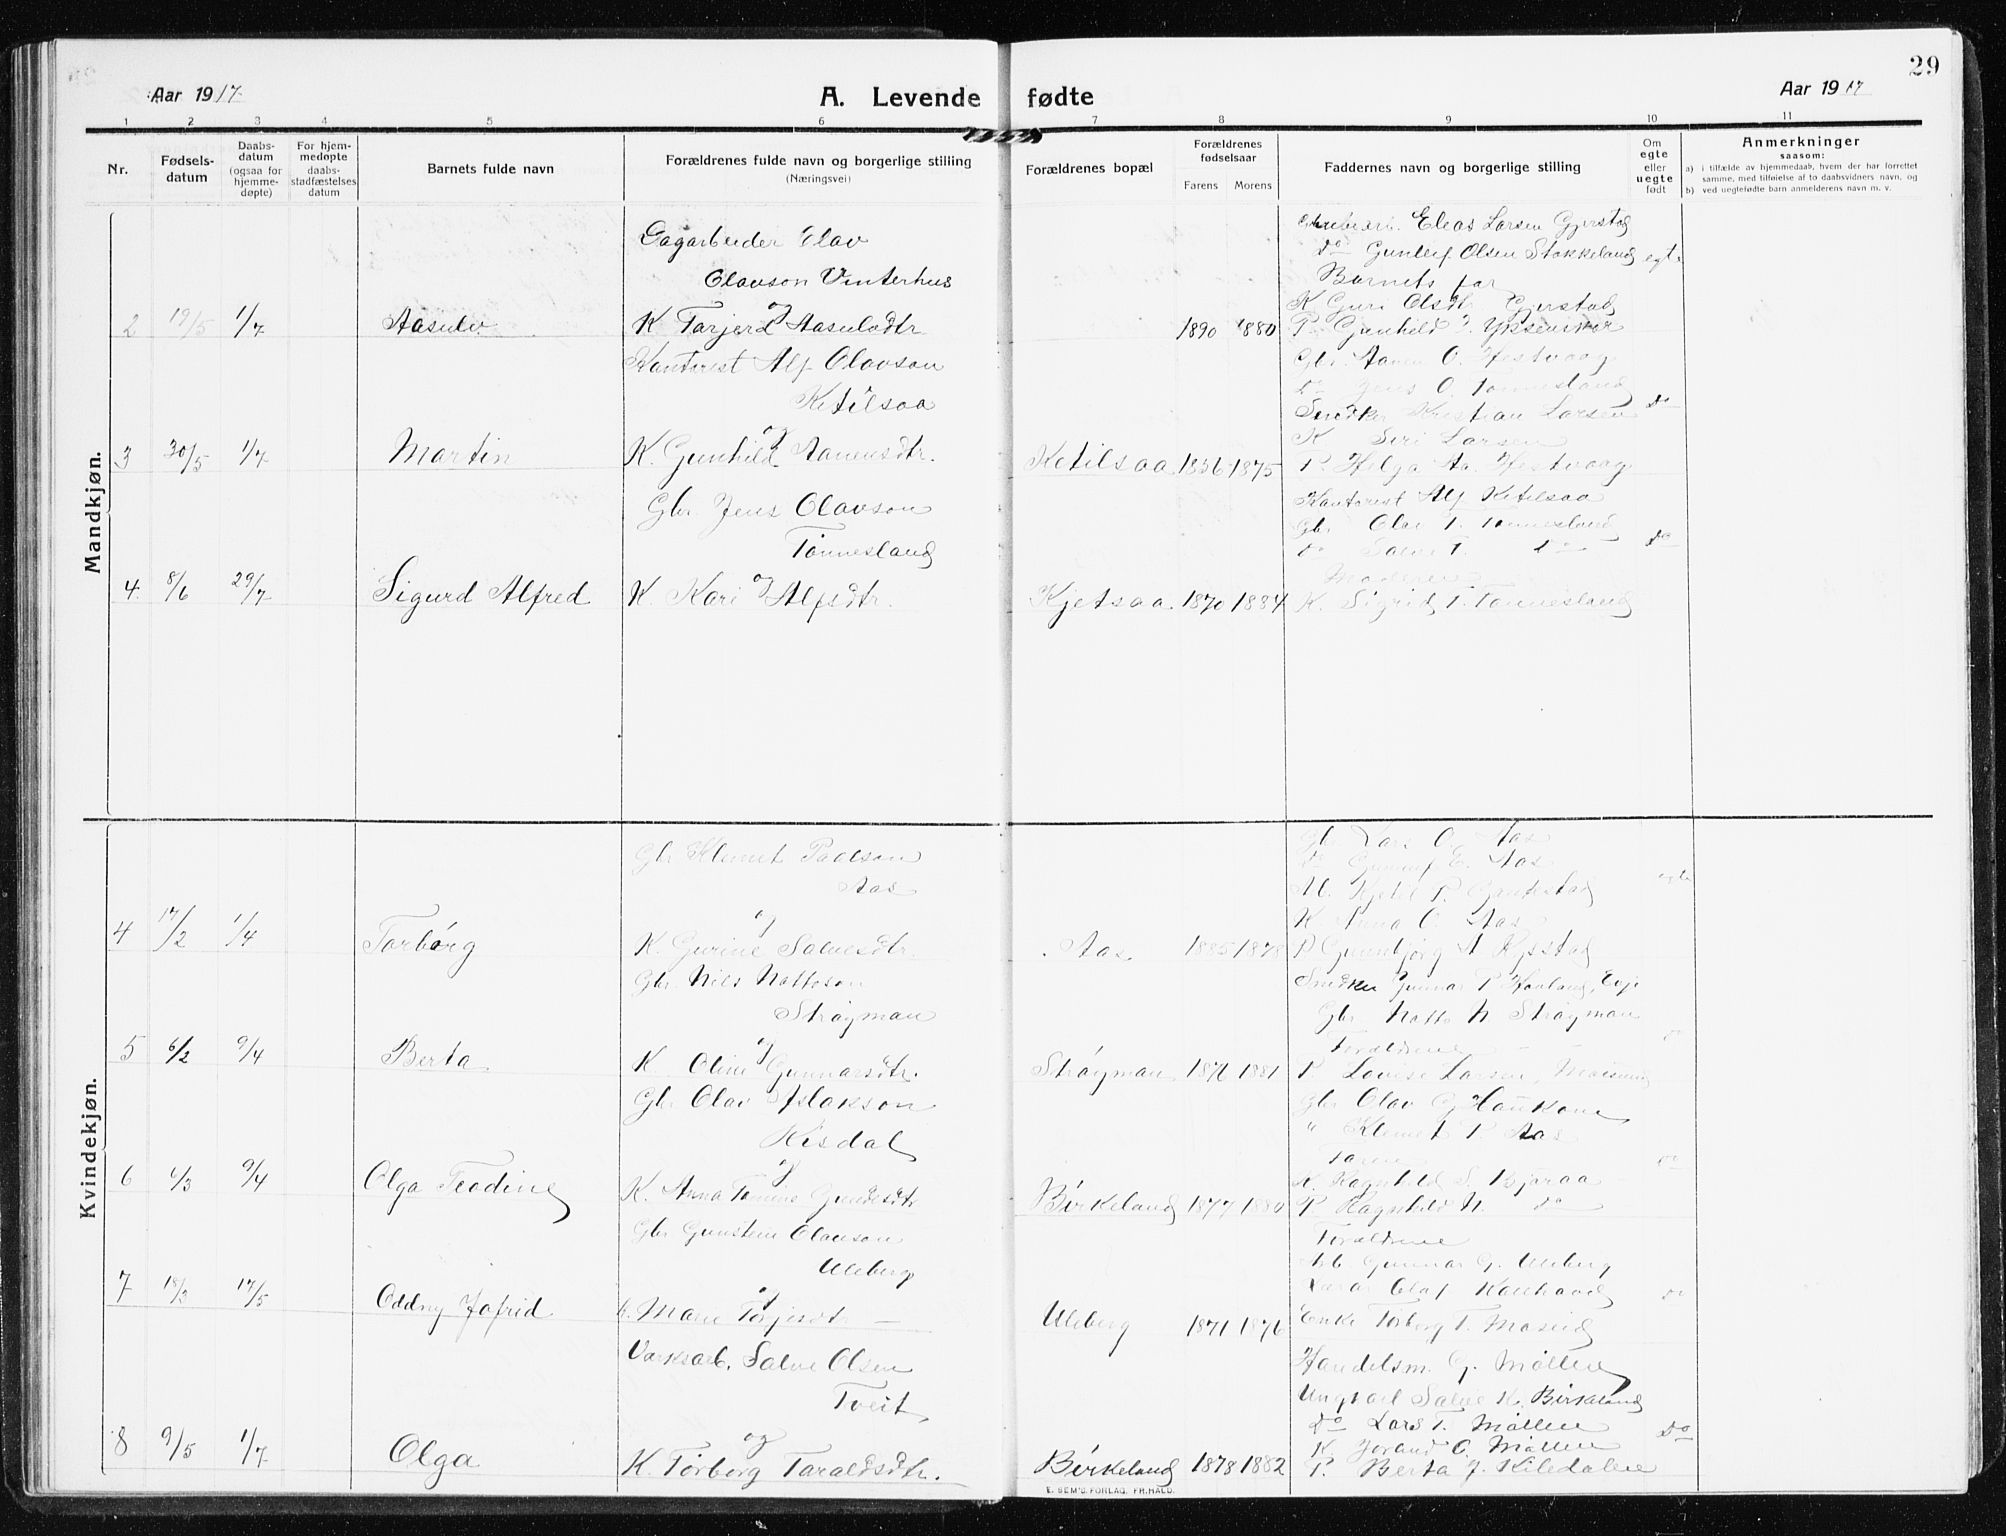 29
Aar 1917. A. Levende fødte Aar 1917
1 2 3 4 5 6 7 8 9 10 11
Nr. Fødsels-datum Daabs-datum (ogsaa for hjemme-døpte) For hjem-medøpte daabs-stadfæstelses datum Barnets fulde navn Forældrenes fulde navn og borgerlige stilling (Næringsvei) Forældrenes bopæl Forældrenes fødselsaar Farens Morens Faddernes navn og borgerlige stilling Om egte eller uegte født Anmerkninger saasom:
a) i tilfælde av hjemmedaab, hvem der har forrettet samme, med tilføielse af to daabsvidners navn, og
b) ved uegtefødte barn anmelderens navn m. v.
Mandkjøn.
Dagarbeider Olav
Olavson Vinterhus
og
2 19/5 1/7 Aasulv K Torjerd Aasulvdtr. 1890 1880
Eleas Larsen Gjerstad
Do Gunleif Olsen Stokkeland egte
Barnets far
K Guri Olsdtr Gjerstad
P. Gunhild
Kantorist Alf Olavson
Ketilsaa
og
3 30/5 1/7 Martin K. Gunhild Aanensdtr. Ketilsaa 1836 1875
Gbr. Aanen O. Hestvaag
Do Jens O. Tønnesland
Snedker Kristian Larsen Do
K Siri Larsen
P. Helga Aa. Hestvaag
Gbr. Jens Olavson
Tønnesland
og
4. 8/6 29/7 Sigurd Alfred K. Kari Alfsdtr. Kjetsaa 1870 1884
Kantorist Alf Ketilsaa
Gbr Olav T. Tønnesland
Do Salve T. Do Do
Moderen
K. Sigrid T. Tønnesland
Kvindekjøn.
Gbr Klemet Paalson
Aas
og
4 17/2 1/4 Torbørg K. Gurine Salvesdtr. Aas 1885 1878
Gbr Lars O. Aas
Do Gunleif E. Aas
M. Kjetil P. egte
K Anna O. Aas
P Gunnbjørg
Gbr. Nils Nottoson
Strøyman
og
5 6/2 9/4 Berta K Oline Gunnarsdtr. Strøyman 1876 1881
Snedker Gunnar P Haaland, Evje
Gbr Notto N Strøyman
Forældrene Do
P. Lovise Larsen,
Gbr Olav Aslakson
Kisdal
og
6 6/3 9/4 Olga Teodine K. Anna Tomine Birkeland 1877 1880
Gbr Olav G. Haukom
" Klemet P. Aas
Faren Do
K. Ragnhild S. Bjoraa
P. Ragnhild N. Do
Gbr Gunstein Olavson
Uleberg
og
7 18/3 17/5 Oddny Jofrid K. Marie Torjesdtr Uleberg 1871 1876
Forældrene
Gunnar G. Uleberg
Olaf Do
Enke Torborg T.
Værksarb. Salve Olsen
Tveit
og
8 9/5 1/7 Olga K. Torborg Taraldsdtr. Birkeland 1878 1882
Handelsm. G. Møllen
Ungkarl Salve K. Birkeland
Do Lars T. Møllen Do
K. Jorand O. Møllen
P. Berta J. Kiledalen
E. SEM'S FORLAG, FR.HALD.